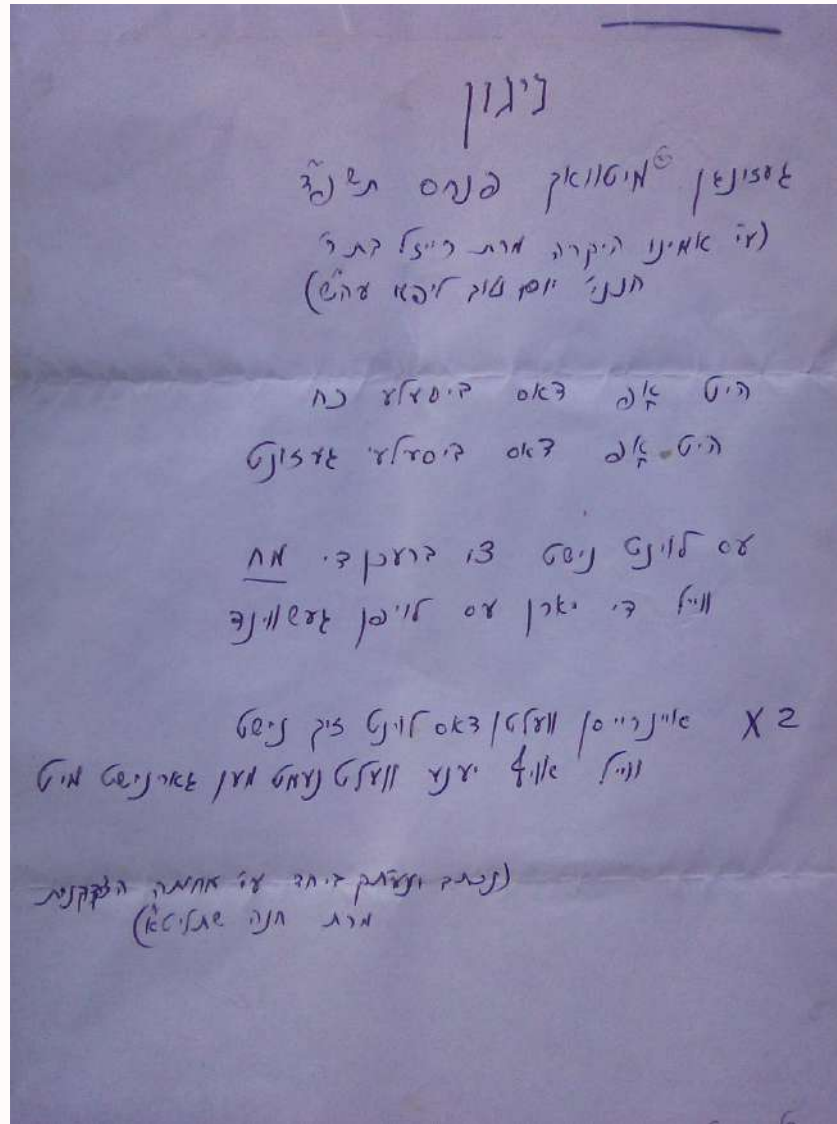 ניגון
געזינגן מיטוואך פנחס תשנ"ד
(ע"י אמינו היקרה מרת רייזל בת ר'
חנני' יום טוב ליפא עה"ש)
היט אָפ דאס ביסעלע כח
היט אָפ דאס ביסעלע געזונט
עס לוינט נישט צו ברעכן די מח
ווייל די יארן עס לויפן געשווינד
X 2 איינרייסן וועלטן דאס לוינט זיך נישט
ווייל אויף יענע וועלט נעמט מען גארנישט מיט
(נכתב ונעתק ביחד ע"י אחותה הצדקנית
מרת חנה שתליט"א)